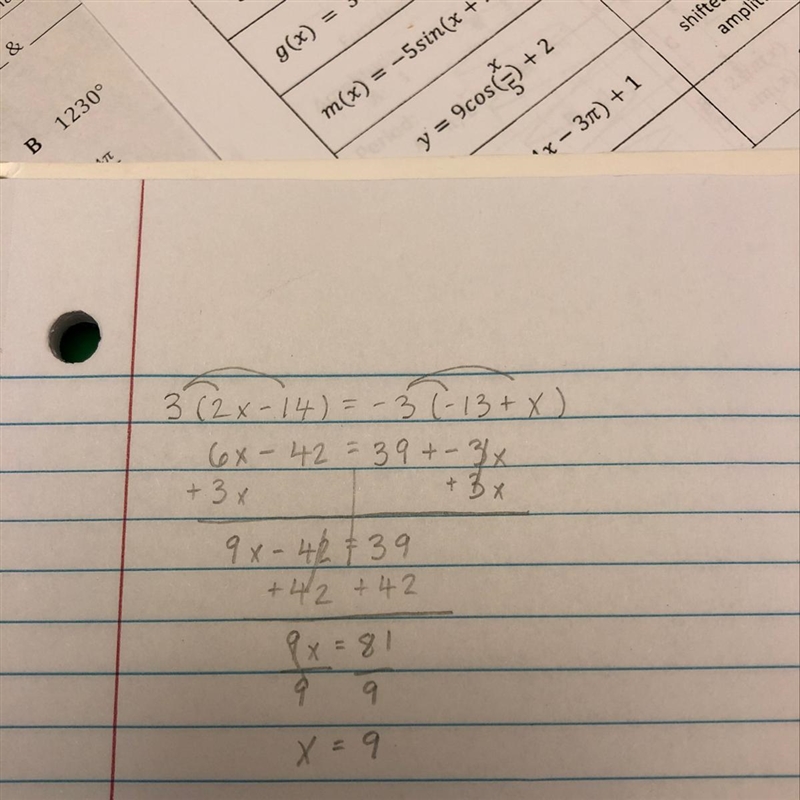 &
B 1230°
g(x) = 3
m(x) = −5sin(x +
y = 9cos(x/5) + 2
x − 3π) + 1
shifted
amplit
3(2x-14) = -3(-13+x)
6x-42 = 39+-3x
+3x +3x
9x-42 = 39
+42 +42
9x = 81
9 9
x = 9